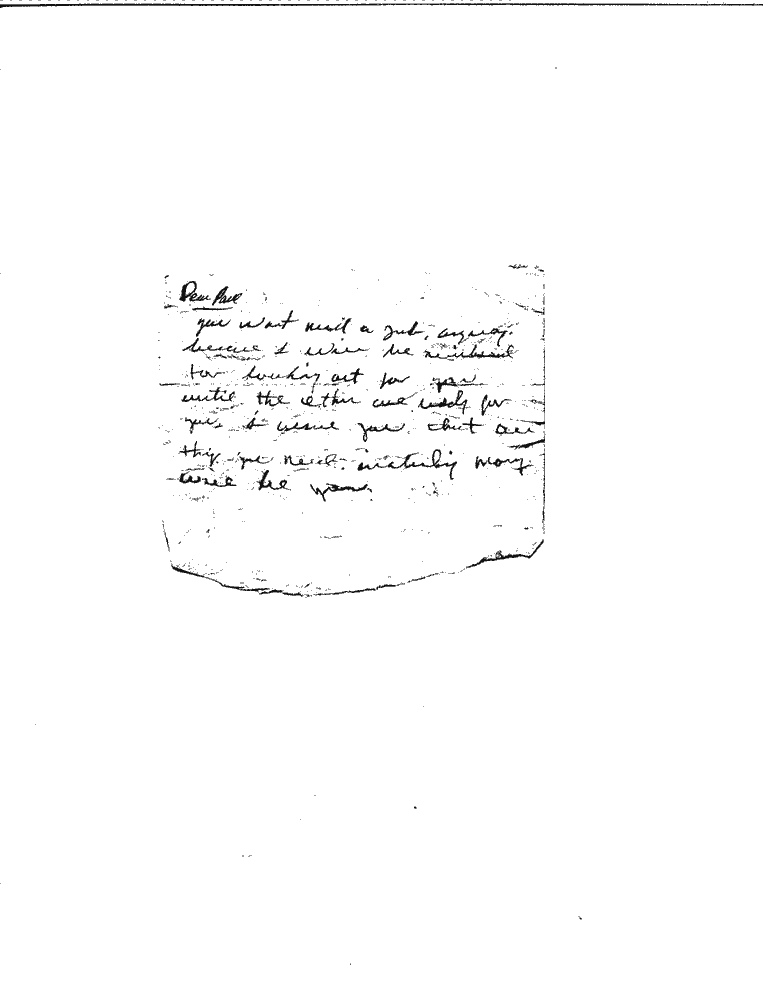 Dear Paul
you won't need a job, anyway.
because I will be reimbursed
for looking out for you
until the other are ready for
you, I assure you. that all
thing you need. money
will be yours.